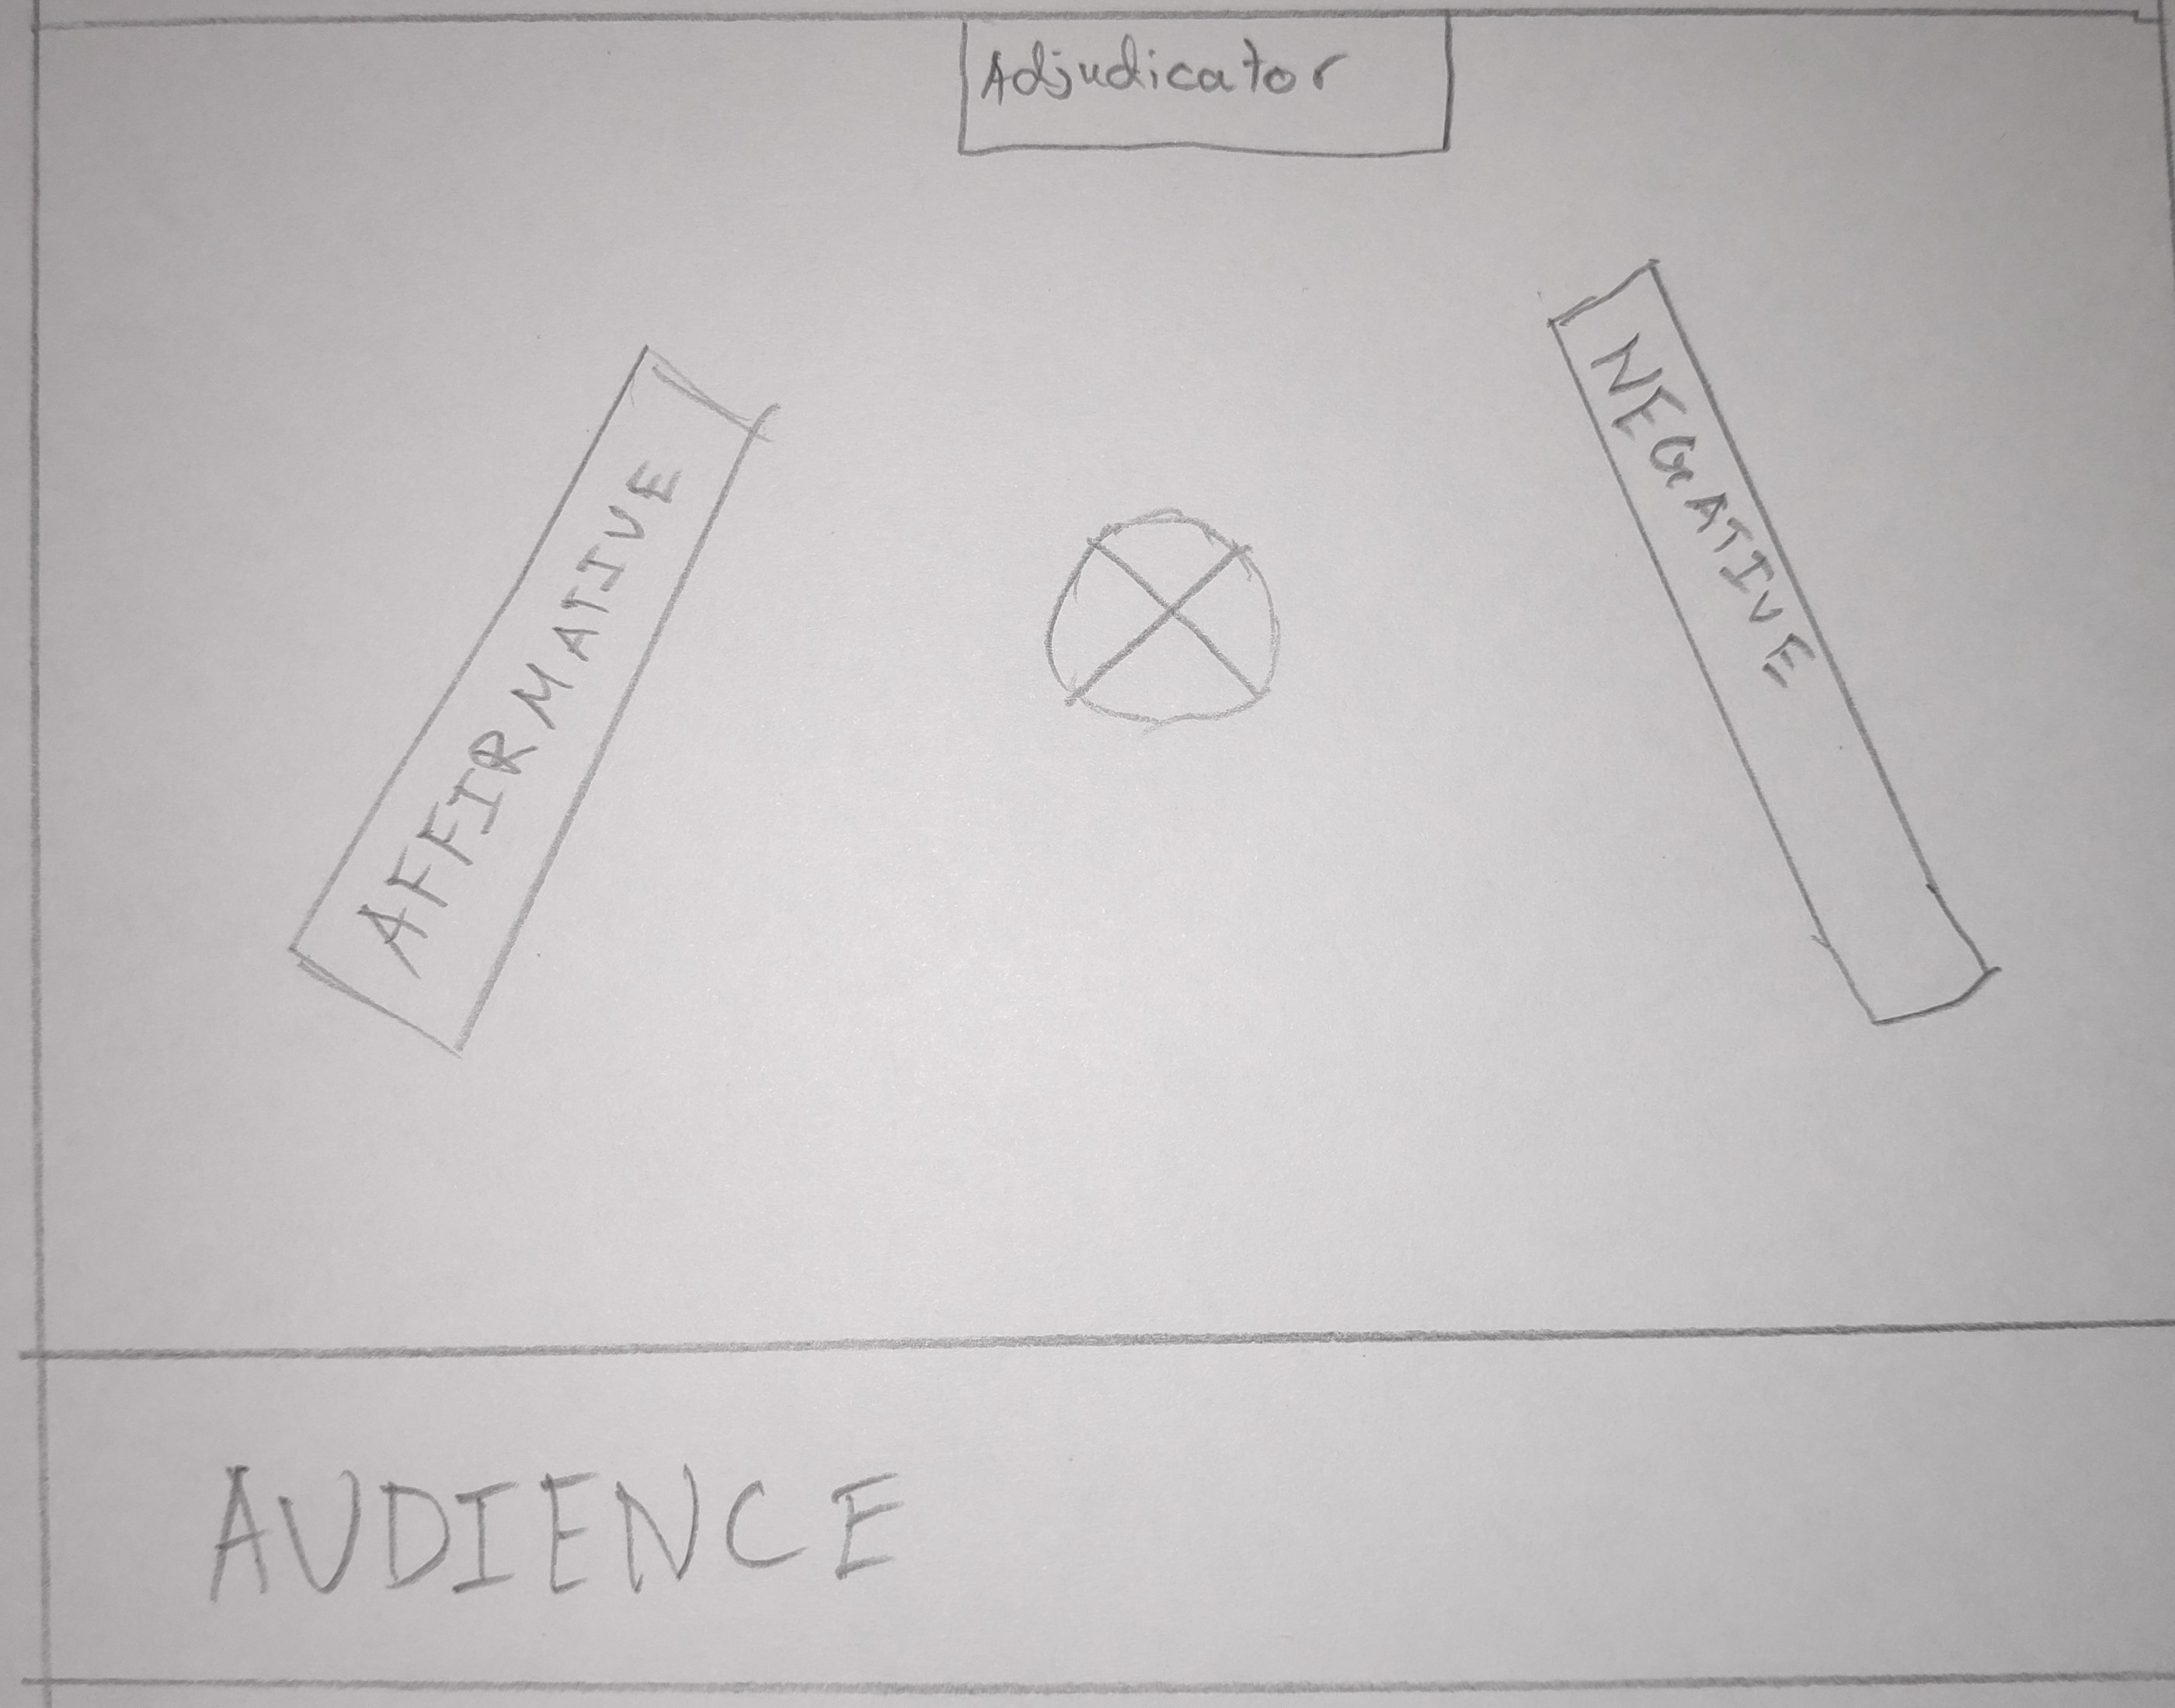 Adjudicator
AFFIRMATIVE
NEGATIVE
AUDIENCE